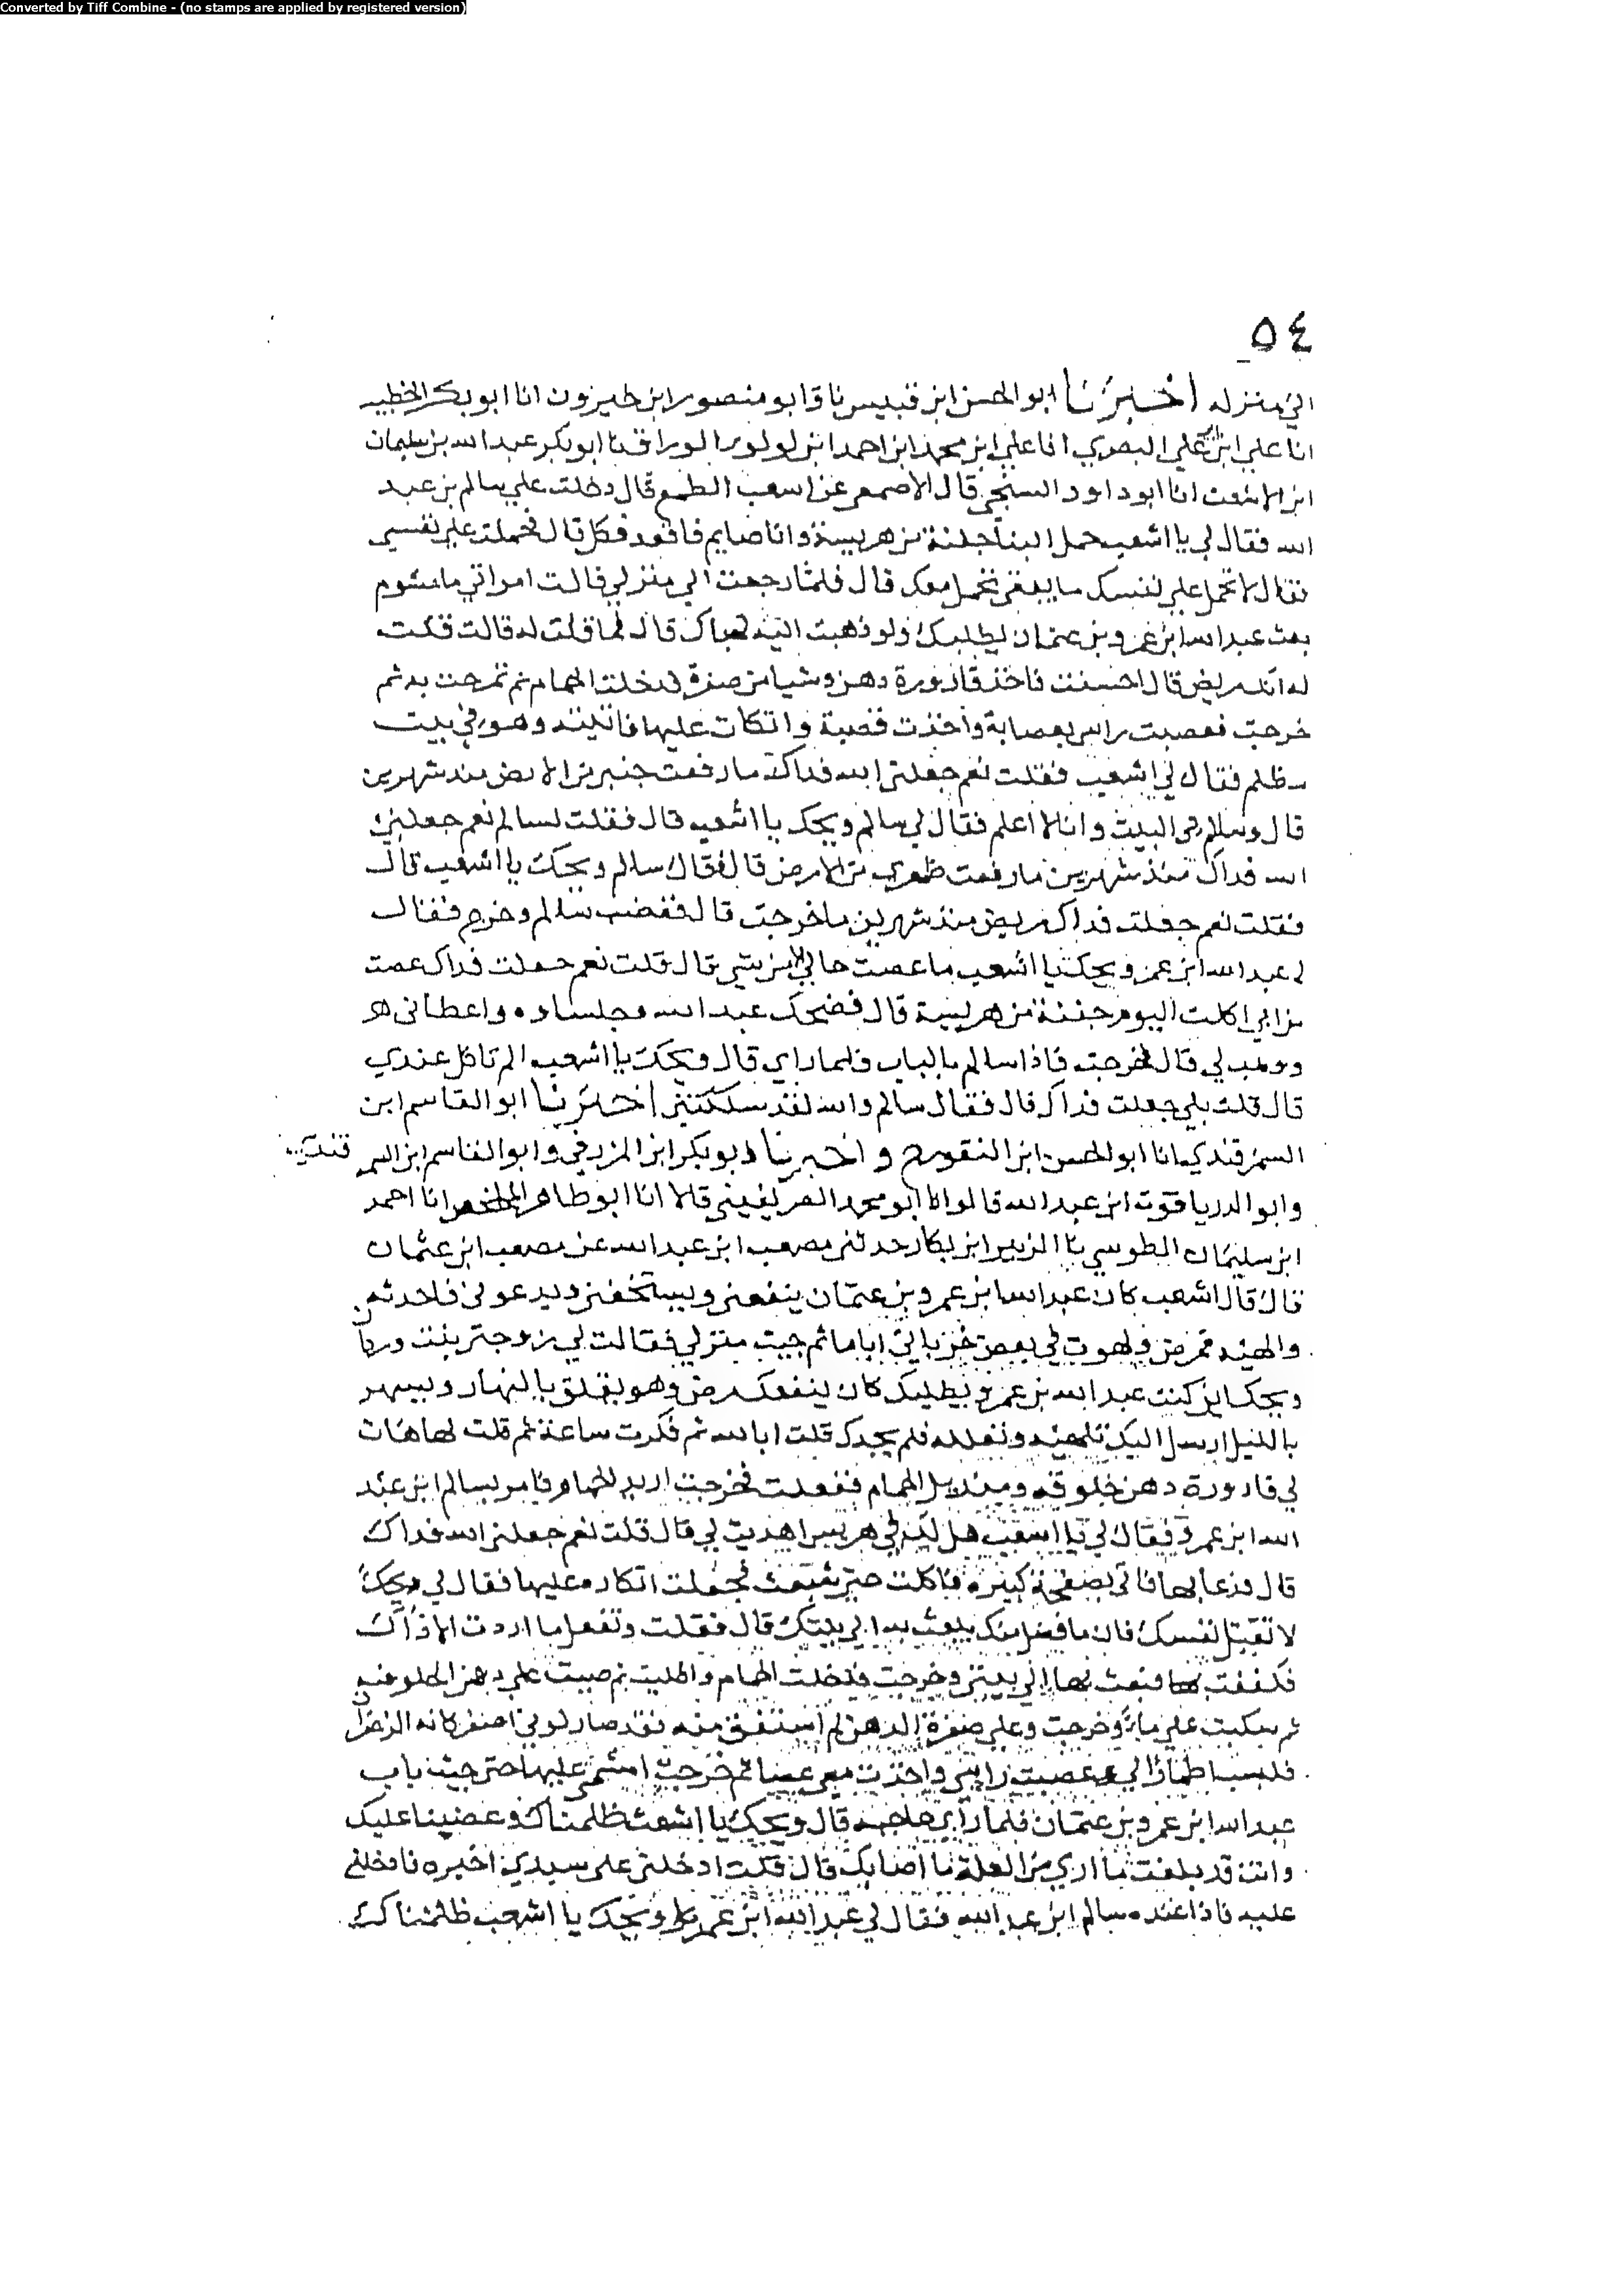 Converted by Tiff Combine - (no stamps are applied by registered version)
٥٤
الي منزله اخبرنا ابو الحسن ابن قبيس نا وابو منصور ابن خيرون انا ابو بكر الخطيب
انا علي ابن علي البصري انا علي ابن محمد ابن احمد ابن لولو الوراق نا ابو بكر عبد الله بن سليمان
ابن الاشعث انا ابو داود السنجي قال الاصمعي عن اشعب الطمع قال دخلت علي سالم بن عبد
الله فقال لي يا اشعب حمل الينا جفنة من هريسة وانا صايم فاقعد فكل قال فحملت علي نفسي
فقال لا تحمل علي نفسك ما يبقي تحمل معك قال فلما رجعت الي منزلي قالت امراتي يا مشوم
بعث عبد الله ابن عمرو بن عثمان يطلبك ولو ذهبت اليه لحباك قال فما قلت له قالت قلت
له انك مريض قال احسنت فاخذ قارورة دهن وشيا من صفرة فدخلت الحمام ثم تمرخت به ثم
خرجت فعصبت راسي بعصابة واخذت قصبة واتكات عليها فاتيته وهو في بيت
مظلم فقال لي اشعب فقلت نعم جعلني الله فداك ما رفعت جنبي من الارض منذ شهرين
قال وسالم في البيت وانا لا اعلم فقال لي سالم ويحك يا اشعب قال فقلت لسالم نعم جعلني
الله فداك منذ شهرين ما رفعت ظهري من الارض قال فقال سالم ويحك يا اشعب قال
فقلت نعم جعلت فداك مريض منذ شهرين ما خرجت قال فغضب سالم وخرج فقال
لي عبد الله ابن عمرو ويحك يا اشعب ما غضب خالي الا من شي قال قلت نعم جعلت فداك غضب
من اني اكلت اليوم جفنة من هريسة قال فضحك عبد الله وجلساوه واعطاني هو
ووهب لي قال فخرجت فاذا سالم بالباب فلما راي قال ويحك يا اشعب الم تاكل عندي
قال قلت بلي جعلت فداك قال فقال سالم والله لقد شككتني اخبرنا ابو القاسم ابن
السمرقندي انا ابو الحسن ابن النقور ح واخبرنا ابو بكر ابن المزرفي وابو القاسم ابن السمرقندي
وابو الدر ياقوت ابن عبد الله قالوا انا ابو محمد الصريفيني قالا انا ابو طاهر المخلص انا احمد
ابن سليمان الطوسي نا الزبير ابن بكار حدثني مصعب ابن عبد الله عن مصعب ابن عثمان
قال قال اشعب كان عبد الله ابن عمرو بن عثمان ينفعني ويستخفني ويدعوني فاحدثه
والهيه فمرض ولهوت في بعض خرباتي اياما ثم جيت منزلي فقالت لي زوجتي بنت وردان
ويحك اين كنت عبد الله بن عمرو يطلبك كان ينفعك مرض وهو يقلق بالنهار ويسهر
بالليل ارسل اليك تلهيه وتعلله فلم يجدك قلت انا لله ثم فكرت ساعة ثم قلت لها هات
لي قارورة دهن خلوقية ومنديل الحمام ففعلت فخرجت اريد الحمام فامر بسالم ابن عبد
الله ابن عمر فقال لي يا اشعب هل لك في هريس اهديت لي قال قلت نعم جعلني الله فداك
قال فدعا بها فاتي بصفحة كبيرة فاكلت حتي شبعت فجعلت اتكاره عليها فقال لي ويحك
لا تقتل نفسك فان ما فضل منك يبعث به الي بيتك قال فقلت وتفعل ما اردت الا ذاك
فكففت فبعث بها الي بيتي وخرجت فدخلت الحمام واطليت ثم صببت علي دهن الخلوقية
ثم سكبت علي ماء وخرجت وعلي صفرة الدهن لم استفق منه فقد صار لوني اصفر كانه الزعفران
فلبست اطمارا لي وعصبت راسي واخذت معي عصا ثم خرجت امشي عليها حتي جيت باب
عبد الله ابن عمرو بن عثمان فلما راي حاجبه قال ويحك يا اشعب ظلمناك وغضبنا عليك
وانت قد بلغت ما اري من العلة ما اصابك قال قلت ادخلني علي سيدي اخبره فادخلني
عليه فاذا عنده سالم ابن عبد الله فقال لي عبد الله ابن عمرو ويحك يا اشعب ظلمناك